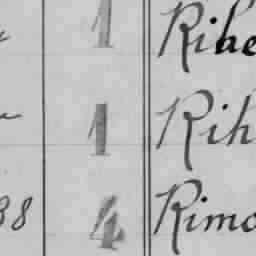 1 Ribe
1 Rih
38 4 Rimo